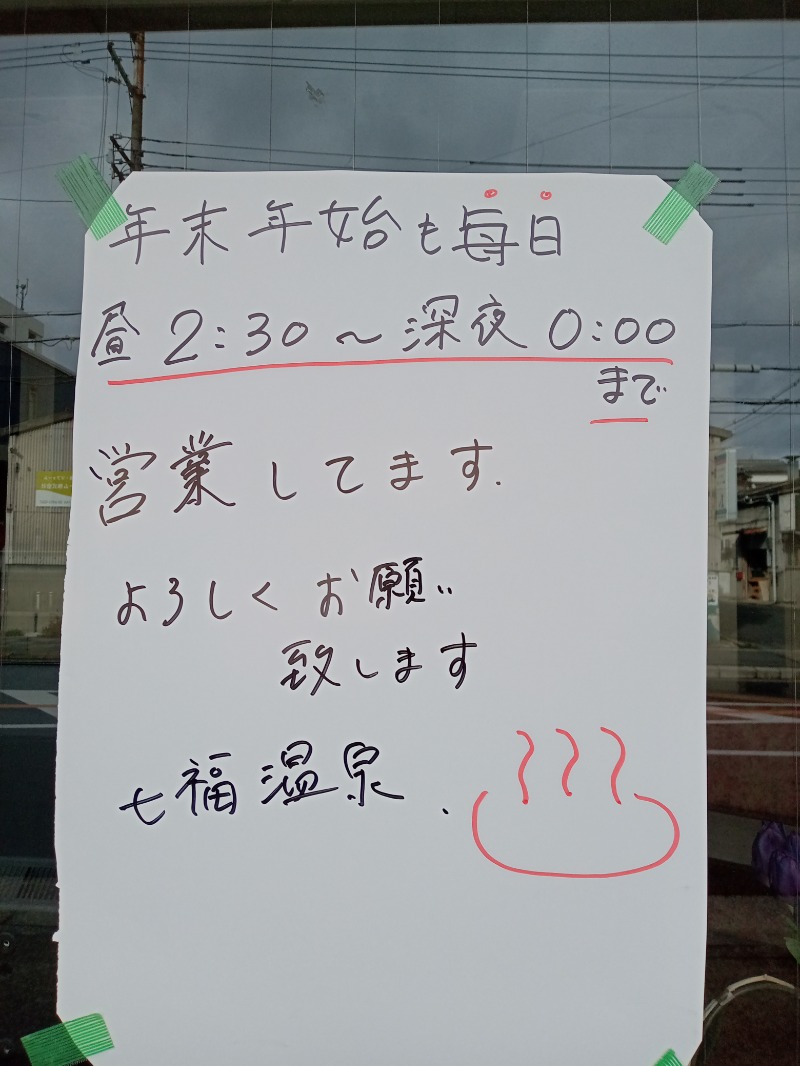 年末年始も毎日
昼 2:30 〜 深夜 0:00
まで
営業してます.
よろしくお願い
致します
七福温泉.